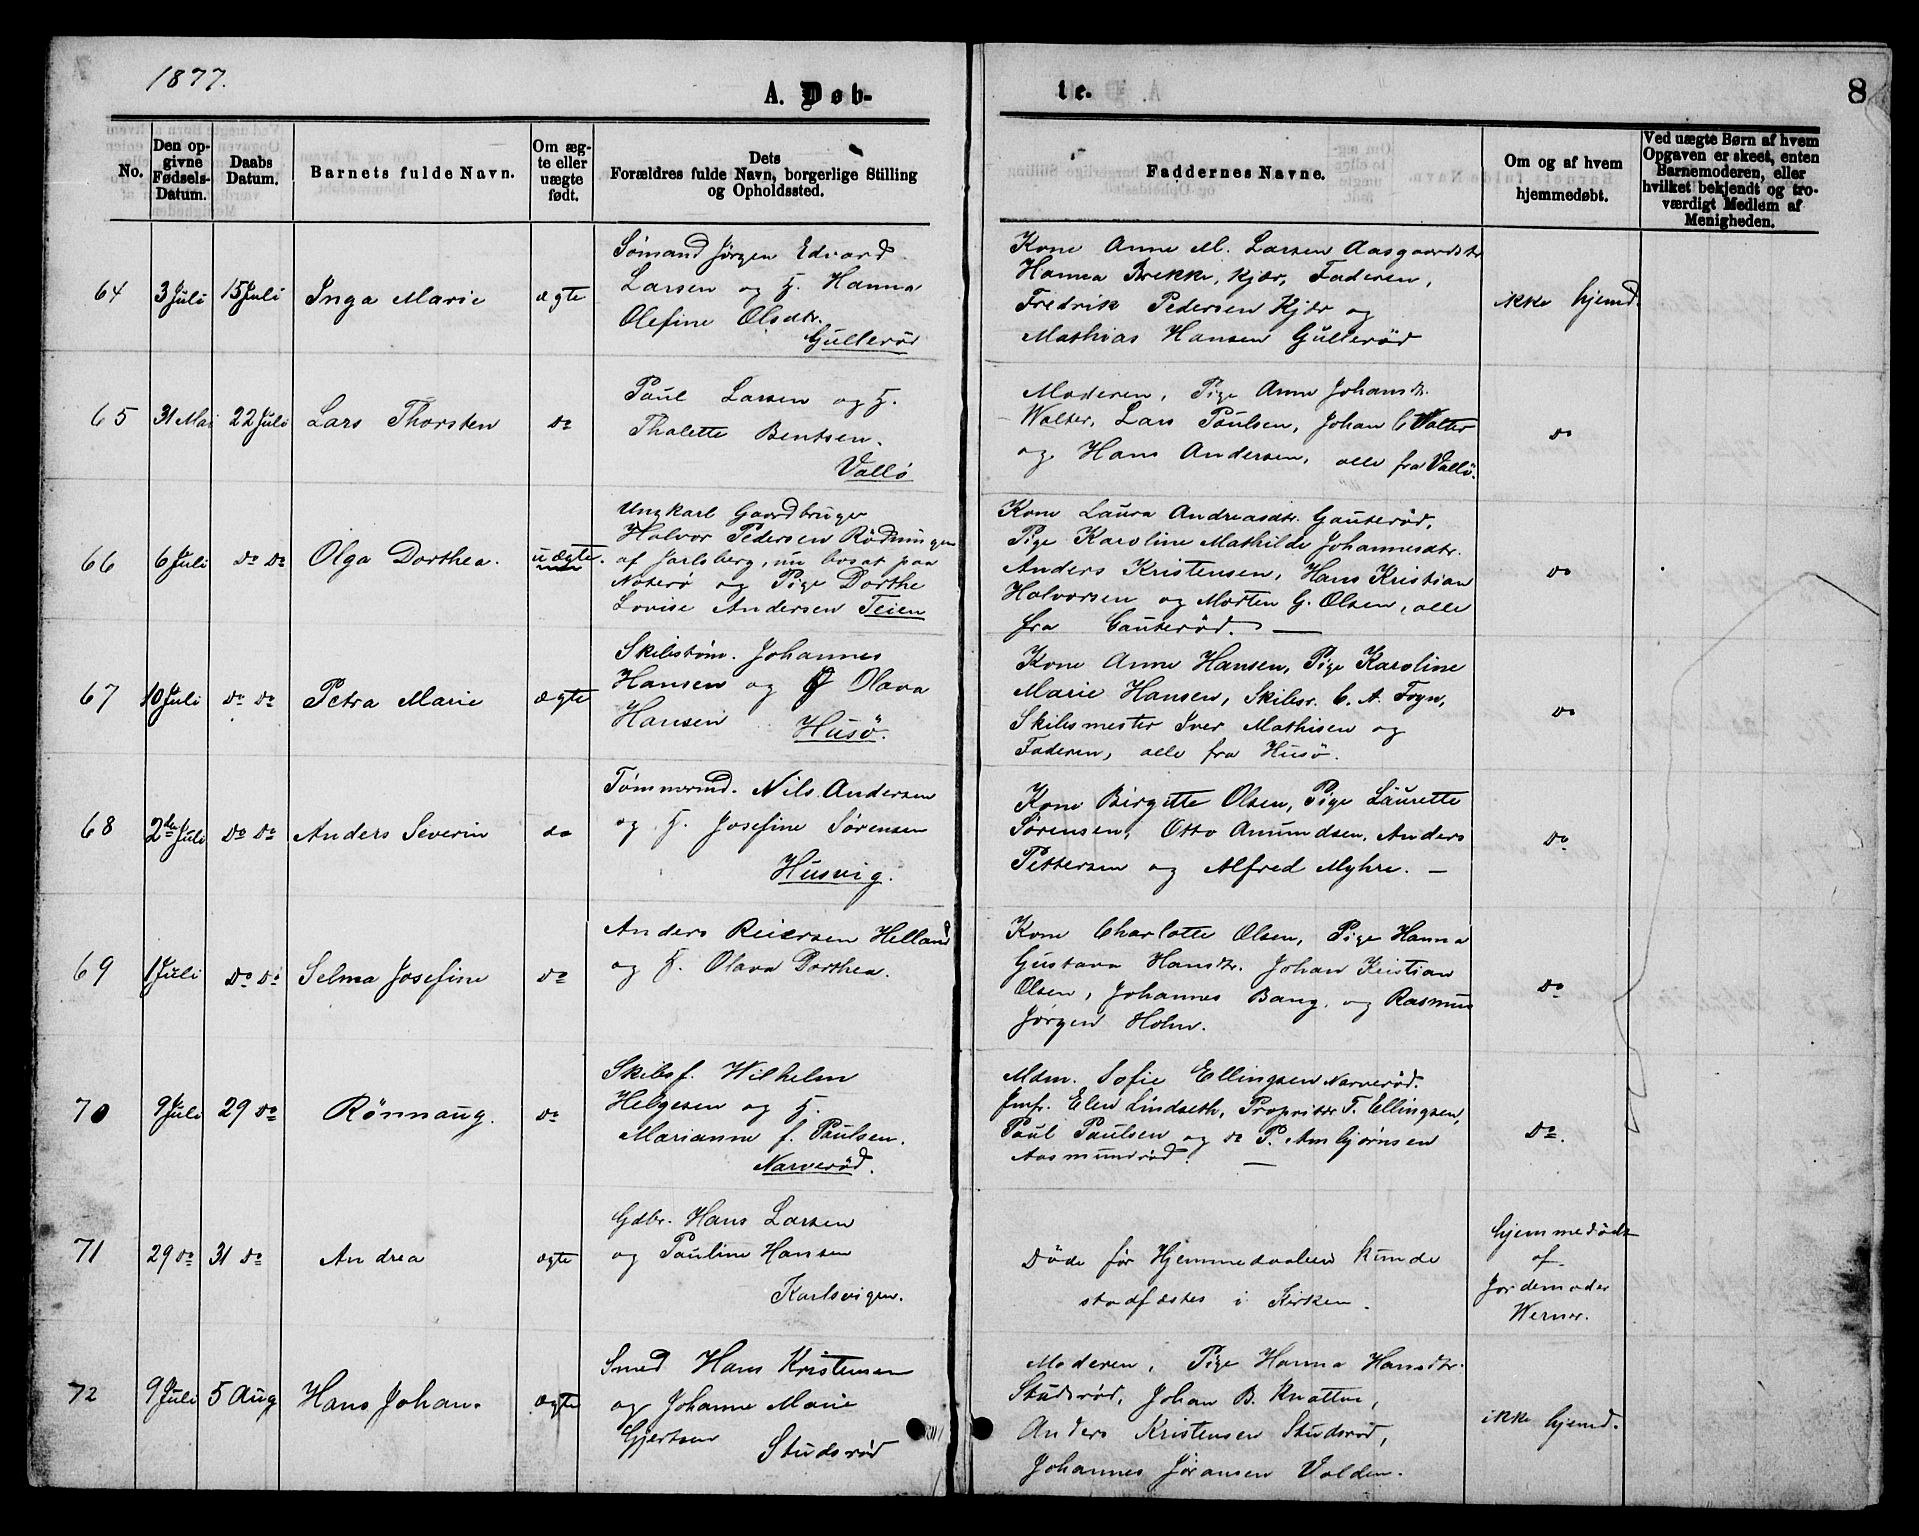 1877.
A. Døb-
te.
8
No.
Den op-
givne
Fødsels-
Datum.
Daabs
Datum.
Barnets fulde Navn.
Om æg-
te eller
uægte
født.
Dets
Forældres fulde Navn, borgerlige Stilling
og Opholdssted.
Faddernes Navne.
Om og af hvem
hjemmedøbt.
Ved uægte Børn af hvem
Opgaven er skeet, enten
Barnemoderen, eller
hvilket bekjendt og tro-
værdigt Medlem af
Menigheden.
64
3 Juli
15 Juli
Inga Marie
ægte
Sømand Jørgen Edvard
Larsen og H. Hanna
Olefine Olsdtr.
Gullerød
Kone Anne M. Larsen Aasgaardstr
Hanna Brekke, Kjær, Faderen,
Fredrik Pedersen Kjær og
Mathias Hansen Gullerød
ikke hjemd.
65
31 Mai
22 Juli
Lars Thorsten
do
Paul Larsen og H.
Thalette Bentsen.
Vallø
Moderen, Pige Anne Johansdtr.
Walter, Lars Paulsen, Johan C Walter
og Hans Andersen, alle fra Vallø.
do
66
6 Juli
do do
Olga Dorthea.
uægte.
Ungkarl Gaardbruger
Halvor Pedersen Rødningen
af Jarlsberg, nu bosat paa
Noterø og Pige Dorthe
Lovise Andersen Teien
Kone Laura Andreasdtr. Gauterød,
Pige Karoline Mathilde Johannesdtr.
Anders Kristensen, Hans Kristian
Halvorsen og Morten G. Olsen, alle
fra Gauterød. —
do
67
10 Juli
do do
Petra Marie
ægte
Skibstøm. Johannes
Hansen og H Olava
Hansen
Husö.
Kone Anne Hansen, Pige Karoline
Marie Hansen, Skibsr. C. A. Foyn,
Skibsmester Iver Mathisen og
Faderen, alle fra Husö.
do
68
2de Juli
do do
Anders Severin
do
Tømmermd. Nils Andersen
og H. Josefine Sørensen
Husvig.
Kone Birgitte Olsen, Pige Laurette
Sørensen, Otto Amundsen, Anders
Pettersen og Alfred Myhre. —
do
69
1 Juli
do do
Selma Josefine
do
Anders Reiersen Helland
og H. Olava Dorthea.
Kone Charlotte Olsen, Pige Hanna
Gustava Hansdtr. Johan Kristian
Olsen, Johannes Bang, og Rasmus
Jørgen Holm.
do
70
9 Juli
29 do
Rönnaug.
do
Skibsf. Wilhelm
Helgesen og H.
Marianne f. Paulsen.
Narverød.
Mdm. Sofie Ellingsen Narverød.
Jmfr. Elen Lindseth, Propritær T. Ellingsen,
Paul Paulsen og do P. Ambjørnsen
Aasmundrød. —
do.
71
29 do
31 do
Andrea
ægte
Gdbr. Hans Larsen
og Pauline Hansen
Karlsvigen.
Døde før Hjemmedaaben kunde
stadfæstes i Kirken.
hjemmedøbt
af
Jordemoder
Werner.
72
9 Juli
5 Aug
Hans Johan.
ægte
Smed Hans Kristensen
og Johanne Marie
Gjertsen
Studsrød
Moderen, Pige Hanna Hansdtr.
Studsrød, Johan B. Knatten,
Anders Kristensen Studsrød,
Johannes Jöransen Volden.
ikke hjemd.